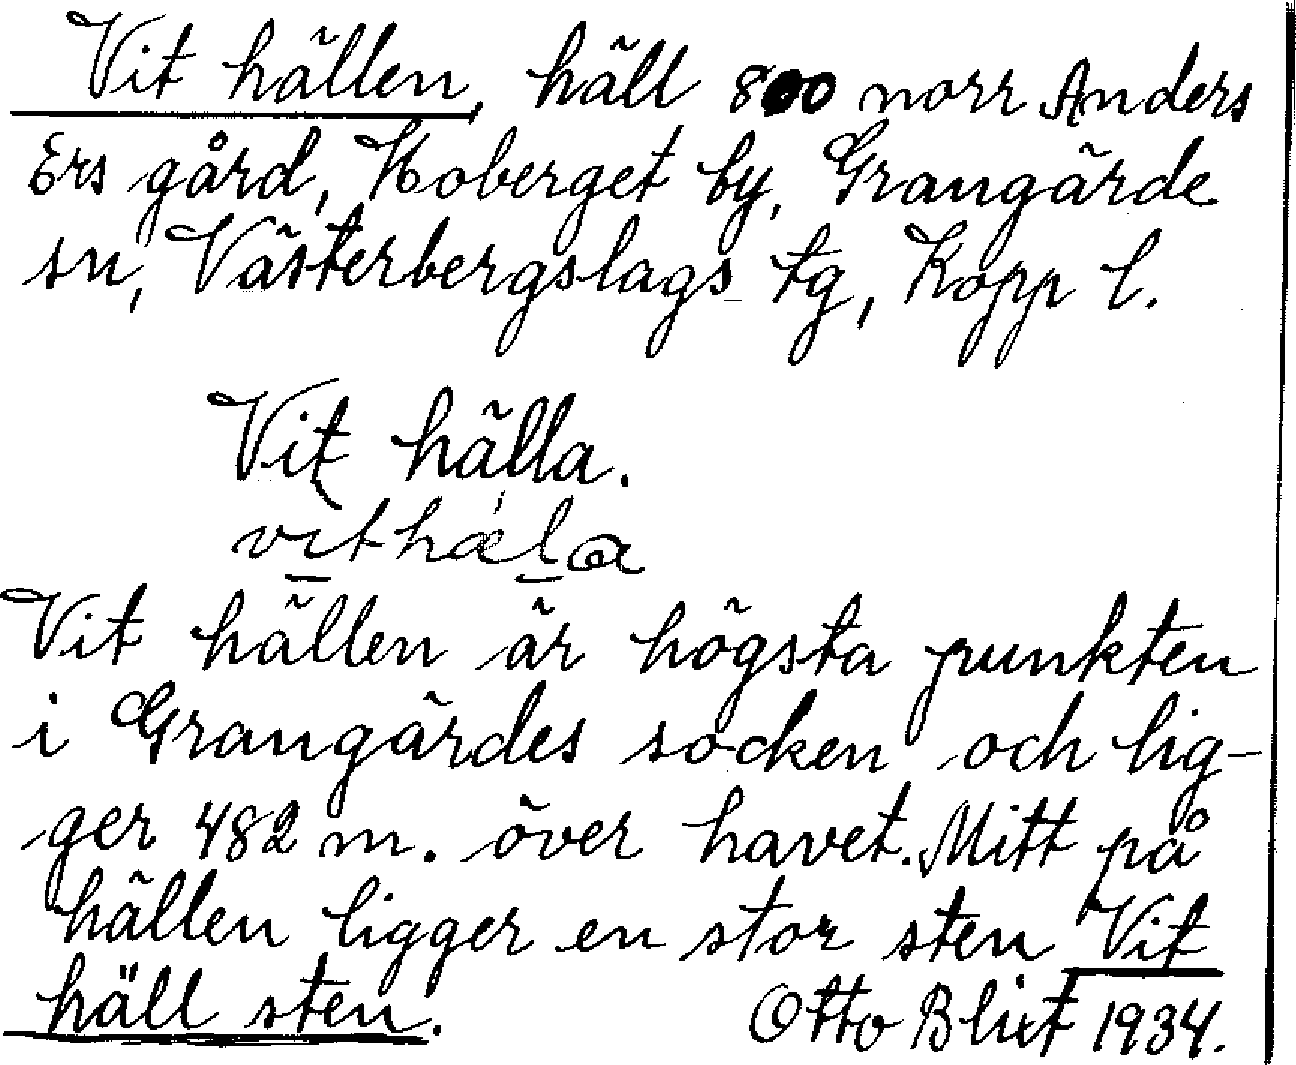 Vit hällen, häll 800 norr Anders
Ers gård, Hoberget by, Grangärde
sn, Västerbergslags tg, Kopp l.
Vit hälla.
vithæla
Vit hällen är högsta punkten
i Grangärdes socken och lig-
ger 482 m. över havet. Mitt på
hällen ligger en stor sten Vit
häll sten.
Otto Blixt 1934.